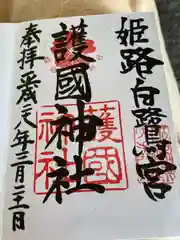 姫路白鷺宮
護國神社
護國神社
奉拝 平成二八年三月二十一日